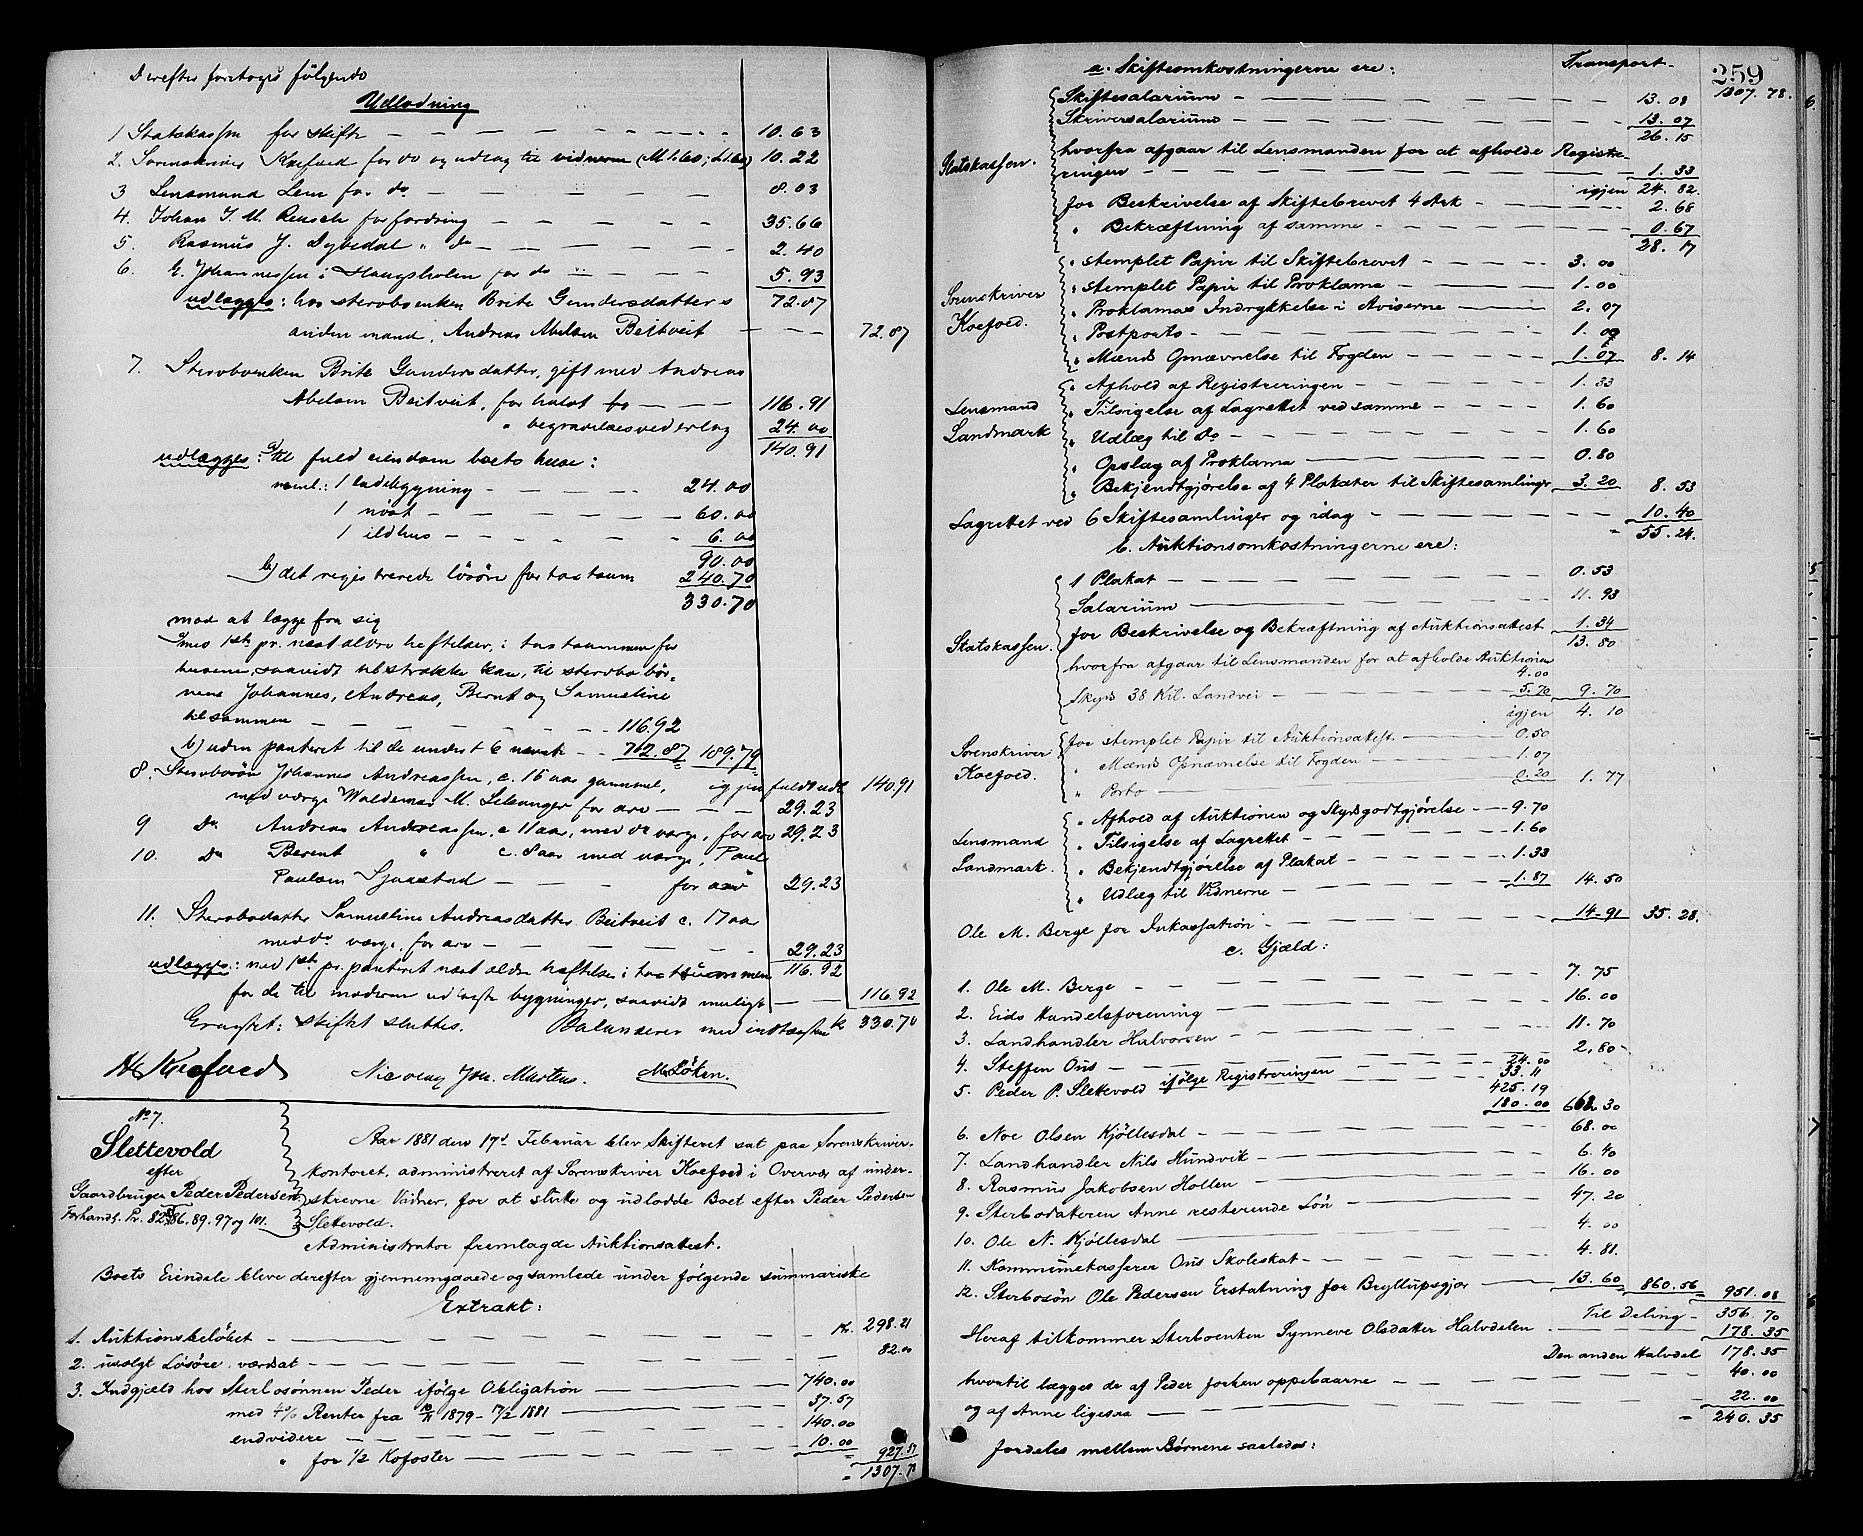 Derefter foretoges følgende
Udlodning
1 Statskassen for skifte — — — 10.63
2. Sorenskriver Koefoed for do og udlæg til vidnerne 10.22
3 Lensmand Lem for do — — — 8.03
4. Johan J. M. Reusch for fordring — — — 35.66
5. Rasmus J. Dybedal " do — — — 2.40
6. E. Johannessen i Haugsholen for do — — — 5.93
udlægges: hos stervboenken Brite Gundersdatters 72.87
anden mand, Andreas Abelsen Beitveit — — — 72.87
7. Stervboenken Brite Gundersdatter, gift med Andreas
Abelsen Beitveit, for halvt bo — — — 116.91
" begravelsesvederlag 24.00
udlægges: a) til fuld eiendom boets huse: 140.91
neml.: 1 ladebygning — — — 24.00
1 nøst — — — 60.00
1 ildhus — — — 6.00
90.00
b) det registrerede løsøre for taxtsum 240.70
330.70
mod at lægge fra sig
a) mod 1ste pr. næst ældre heftelser, i taxtsummen for
husene, saavidt tilstrække kan, til stervbobør-
nene Johannes, Andreas, Bernt og Samueline
tilsammen — — — 116.92
b) uden panteret til de under 1-6 nævnte — — 72.87 189.79
8. Stervbosøn Johannes Andreassen, c. 15 aar gammel, igjen fuldt udl. 140.91
med værge Waldemar M. Lekanger for arv — — — 29.23
9 Do Andreas Andreassen, c 11 aar, med do værge, for arv 29.23
10. Do Berent " c. 8 aar med værge, Paul
Paulsen Sjaastad — — — for arv 29.23
11. Stervbodatter Samueline Andreasdatter Beitveit c. 17 aar
med do værge, for arv — — — 29.23
udlægges: med 1ste pr. panteret næst ældre heftelser i taxtsummen 116.92
for de til moderen udlagte bygninger, saavidt muligt — — 116.92
Eragtet: skiftet sluttes. Balancerer med indtægten k 330.70
H. Koefoed Nicolay Joh. Martens. M. Løken.
No 7.
Slettevold
efter
Gaardbruger Peder Pedersen
Forhandl. Pr. 82, 86, 89, 97 og 101.
Aar 1881 den 17de Februar blev Skifteret sat paa Sorenskriver-
kontoret, administreret af Sorenskriver Koefoed i Overvær af under-
skrevne Vidner, for at slutte og udlodde Boet efter Peder Pedersen
Slettevold.
Administrator fremlagde Auktionsattest.
Boets Eiendele bleve derefter gjennemgaaede og samlede under følgende summariske
Extrakt:
1. Auktionsbeløbet — — — Kr. 298.21
2. usolgt Løsøre, værdsat — — — 82.00
3. Indgjæld hos Sterbosønnen Peder ifølge Obligation — — — 740.00
med 4% Renter fra 1879 - 17/2 1881 — — — 37.57
endvidere — — — 140.00
" for 1/2 Kofoster — — — 10.00 927.57
1307.78
259
a. Skifteomkostningerne ere: Transport — 1307.78.
Skiftesalarium — — — 13.08
Skriversalarium — — — 13.07
26.15
hvorfra afgaar til Lensmanden for at afholde Registre-
Statskassen. ringen — — — 1.33
igjen 24.82.
for Beskrivelse af Skiftebrevet 4 Ark — — — 2.68
" Bekræftning af samme — — — 0.67
28.17
" stemplet Papir til Skiftebrevet — — — 3.00
Sorenskriver " stemplet Papir til Proklama — — — 1.00
" Proklamas Indrykkelse i Aviserne — — — 2.07
Koefoed. " Postporto — — — 1.00
" Mænds Opnævnelse til Fogden — — — 1.07 8.14
" Afhold af Registreringen — — — 1.33
Lensmand " Tilsigelse af Lagrettet ved samme — — — 1.60
Landmark " Udlæg til Do — — — 1.60
" Opslag af Proklama — — — 0.80
" Bekjendtgjørelse af 4 Plakater til Skiftesamlinger 3.20 8.53
Lagrettet ved 6 Skiftesamlinger og idag — — — 10.40
55.24.
b. Auktionsomkostningerne ere:
1 Plakat — — — 0.53
Salarium — — — 11.93
for Beskrivelse og Bekræftning af Auktionsattest 1.34
Statskassen. 13.80
hvorfra afgaar til Lensmanden for at afholde Auktionen
4.00
Skyds 38 Kil. Landvei — — — 5.70 9.70
igjen 4.10
Sorenskriver for stemplet Papir til Auktionsattest. — — — 0.50
Koefoed. " Mænds Opnævnelse til Fogden — — — 1.07
" Porto — — — 0.20 1.77
" Afhold af Auktionen og Skydsgodtgjørelse — — 9.70
Lensmand " Tilsigelse af Lagrettet — — — 1.60
Landmark. " Bekjendtgjørelse af Plakat — — — 1.33
" Udlæg til Vidnerne — — — 1.87 14.50
Ole M. Berge for Inkassation — — — 14.91 35.28.
c. Gjæld:
1. Ole M. Berge — — — 7.75
2. Eids Handelsforening — — — 16.00
3. Landhandler Halvorsen — — — 11.70
4. Steffen Ous — — — 2.80
5. Peder P. Slettevold ifølge Registreringen — — — 24.00
33.11
425.19
180.00 662.30
6. Noe Olsen Kjøllesdal — — — 68.00
7. Landhandler Nils Hundvik — — — 6.40
8. Rasmus Jakobsen Hollen — — — 16.00
9. Sterbodatteren Anne resterende Løn — — — 47.20
10. Ole N. Kjøllesdal — — — 4.00
11. Kommunekasserer Ous Skoleskat — — — 4.81.
12. Sterbosøn Ole Pedersen Erstatning for Bryllupsgjør — — — 13.60 860.56 951.08
Til Deling — 356.70
Heraf tilkommer Sterboenken Synneve Olsdatter Halvdelen — — — 178.35
Den anden Halvdel 178.35
hvortil lægges de af Peder forhen oppebaarne — — — 40.00
og af Anne ligesaa — — — 22.00
240.35
fordeles mellem Børnene saaledes: